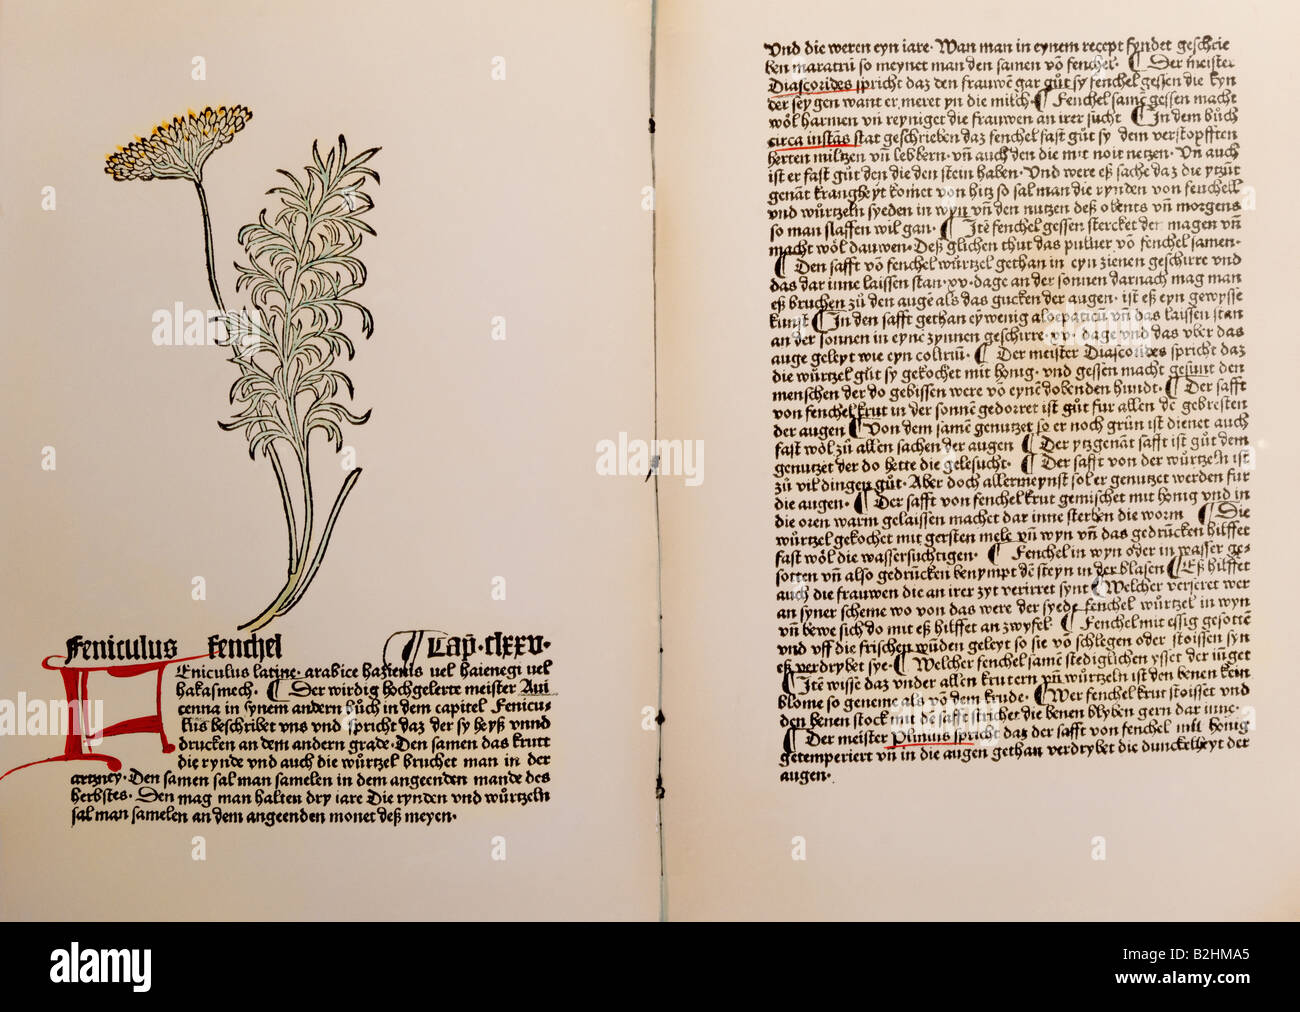 Feniculus fenchel Cap̃·clxxv·
Eniculus latine· arabice hazienis vel haienegi vel
hakasmech· ¶ Der wirdig hochgelerte meister Aui
cenna in synem andern bůch in dem capitel Fenicu-
lus beschribet vns vnd spricht daz der sy heyß vnnd
drucken an dem andern grade· Den samen das krutt
die rynde vnd auch die wůrtzel bruchet man in der
artzney· Den samen sal man samelen in dem angeenden mande des
herbstes· Den mag man halten dry iare Die rynden vnd wůrtzeln
sal man samelen an dem angeenden monet deß meyen·
Vnd die weren eyn iare· Wan man in eynem recept fyndet geschrie
ben maratrū so meynet man den samen võ fenchel· ¶ Der meister
Diascorides spricht daz den frauwẽ gar gůt sy fenchel gessen die kyn
der seygen want er meret yn die milch· ¶ Fenchel samẽ gessen macht
wöl harmen vñ reyniget die frauwen an irer sucht ¶ In dem bůch
circa instãs stat geschrieben daz fenchel fast gůt sy dem verstopfften
herten miltzen vñ lebbern· vñ auch den die mit noit netzen· Vñ auch
ist er fast gůt den die den stein haben· Vnd were eß sache daz die ytzůt
genãt krangheyt komet von hitz so sal man die rynden von fenchell
vnd wůrtzeln syeden in wyn vñ den nutzen deß obents vñ morgens
so man slaffen wil gan· ¶ Itẽ fenchel gessen stercket den magen vñ
macht wöl dauwen· Deß glichen thut das puluer võ fenchel samen·
¶ Den safft võ fenchel wůrtzel gethan in eyn zienen geschirre vnd
das dar inne laissen stan ·xv· dage an der sonnen darnach mag man
eß bruchen zů den augẽ als das gucken der augen· ist eß eyn gewysse
kunst ¶ In den safft gethan ey wenig aloepaticū vñ das laissen stan
an der sonnen in eynẽ zynnen geschirre ·xv· dage vnd das vber das
auge geleyt wie eyn colirū· ¶ Der meister Diascorides spricht daz
die wůrtzel gůt sy gekochet mit honig· vnd gessen macht gesunt den
menschen der do gebissen were võ eynẽ dobenden hundt· ¶ Der safft
von fenchel krut in der sonnẽ gedorret ist gůt fur allen dẽ gebresten
der augen ¶ Von dem samẽ genutzet so er noch grůn ist dienet auch
fast wöl zů allen sachen der augen ¶ Der ytzgenãt safft ist gůt dem
genutzet der do hette die gelesucht· ¶ Der safft von der wůrtzeln ist
zů vil dingen gůt· Aber doch allermeynst sol er genutzet werden fur
die augen· ¶ Der safft von fenchel krut gemischet mit honig vnd in
die oren warm gelaissen machet dar inne sterben die worm ¶ Die
wůrtzel gekochet mit gersten mele vñ wyn vñ das gedrůcken hilffet
fast wöl die wassersuchtigen· ¶ Fenchel in wyn oder in wasser ge-
sotten vñ also gedrůcken benympt dẽ steyn in der blasen ¶ Eß hilffet
auch die frauwen die an irer zyt verirret synt ¶ Welcher verseret wer
an syner scheme wo von das were der syede fenchel wůrtzel in wyn
vñ bewe sich do mit eß hilffet an zwyfel· ¶ Fenchel mit essig gesottẽ
vnd vff die frischen wůden geleyt so sie võ schlegen oder stoissen syn
eß verdrybet sye· ¶ Welcher fenchel samẽ stediglichen ysset der iũget
¶ Itẽ wisse daz vnder allen krutern vñ wůrtzeln ist den benen kein
blome so geneme als võ dem krude· ¶ Wer fenchel krut stoisset vnd
den benen stock mit dẽ safft stricher die benen blyben gern dar inne·
¶ Der meister Plinius spricht daz der safft von fenchel mit honig
getemperiert vñ in die augen gethan verdrybet die dunckelheyt der
augen·
alamy
alamy
Image ID: B2HMA5
www.alamy.com